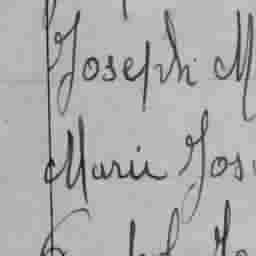 Joseph M
Marie Jos